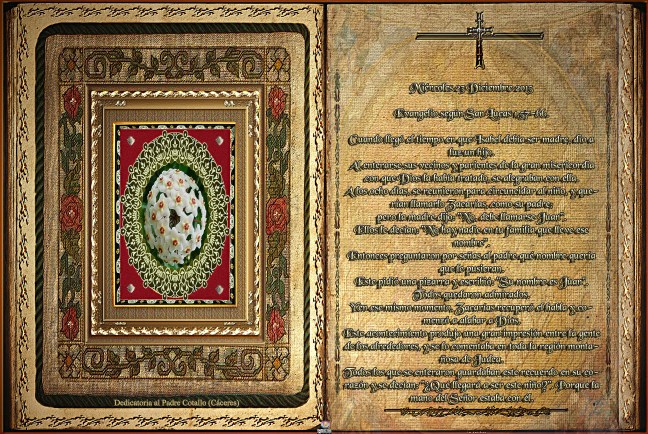 Miércoles 23 Diciembre 2015
Evangelio según San Lucas 1,57-66.
Cuando llegó el tiempo en que Isabel debía ser madre, dio a
luz un hijo.
Al enterarse sus vecinos y parientes de la gran misericordia
con que Dios la había tratado, se alegraban con ella.
A los ocho días, se reunieron para circuncidar al niño, y que-
rían llamarlo Zacarías, como su padre;
pero la madre dijo: "No, debe llamarse Juan".
Ellos le decían: "No hay nadie en tu familia que lleve ese
nombre".
Entonces preguntaron por señas al padre qué nombre quería
que le pusieran.
Este pidió una pizarra y escribió: "Su nombre es Juan".
Todos quedaron admirados.
Y en ese mismo momento, Zacarías recuperó el habla y co-
menzó a alabar a Dios.
Este acontecimiento produjo una gran impresión entre la gente
de los alrededores, y se lo comentaba en toda la región monta-
ñosa de Judea.
Todos los que se enteraron guardaban este recuerdo en su co-
razón y se decían: "¿Qué llegará a ser este niño?". Porque la
mano del Señor estaba con él.
Dedicatoria al Padre Cotallo (Cáceres)